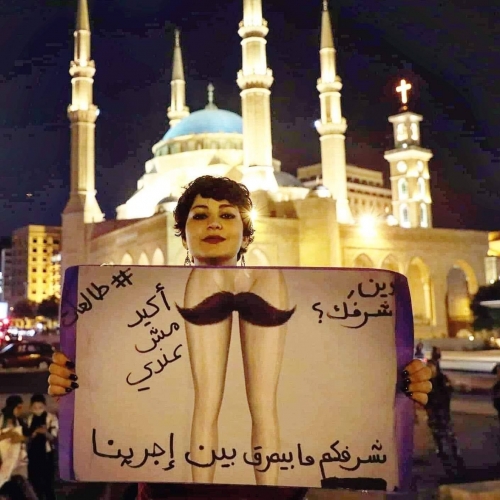 وين
شرفك؟
#طالعات
أكيد
مش
عندي
شرفكم ما بيمرق بين إجرينا